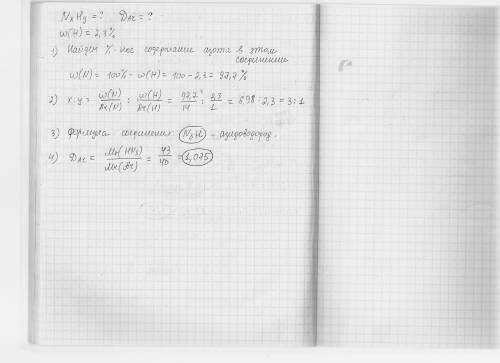 NxHy = ? DAr = ?
w(H) = 2,3%
1) Найдем %-ное содержание азота в этом
соединении
w(N) = 100% - w(H) = 100 - 2,3 = 97,7 %
2) x:y = w(N)/Ar(N) : w(H)/Ar(H) = 97,7/14 : 2,3/1 = 6,98 : 2,3 = 3:1
3) Формула соединения: N3H - азидоводород.
4) DAr = Mr(HN3)/Mr(Ar) = 43/40 = 1,075